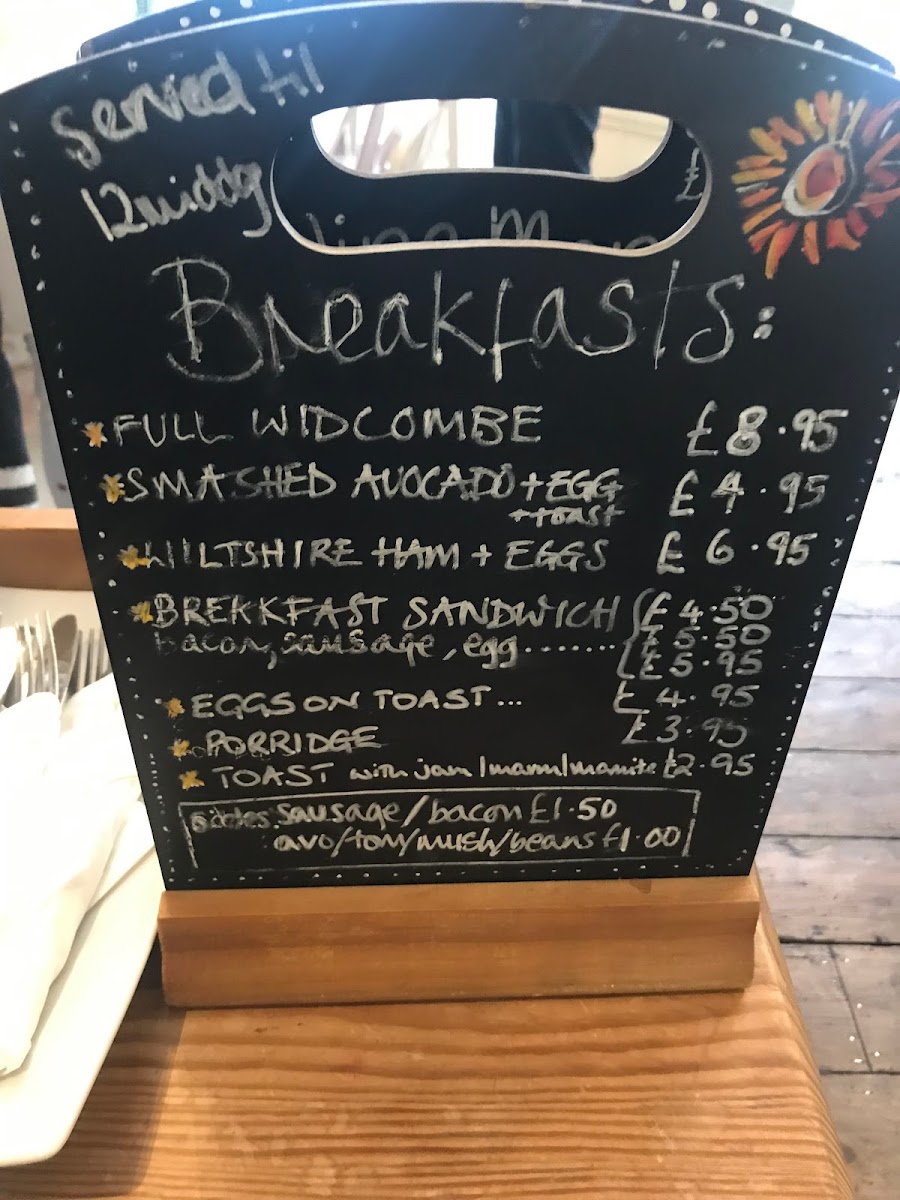 Served til
12 midday
Breakfasts:
FULL WIDCOMBE £8.95
SMASHED AVOCADO + EGG £4.95
+ toast
WILTSHIRE HAM + EGGS £6.95
BREAKFAST SANDWICH £4.50
bacon, sausage, egg....... £5.50
£5.95
EGGS ON TOAST... £4.95
PORRIDGE £3.95
TOAST with jam/marm/marmite £2.95
sides: sausage/bacon £1.50
avo/tom/mush/beans £1.00